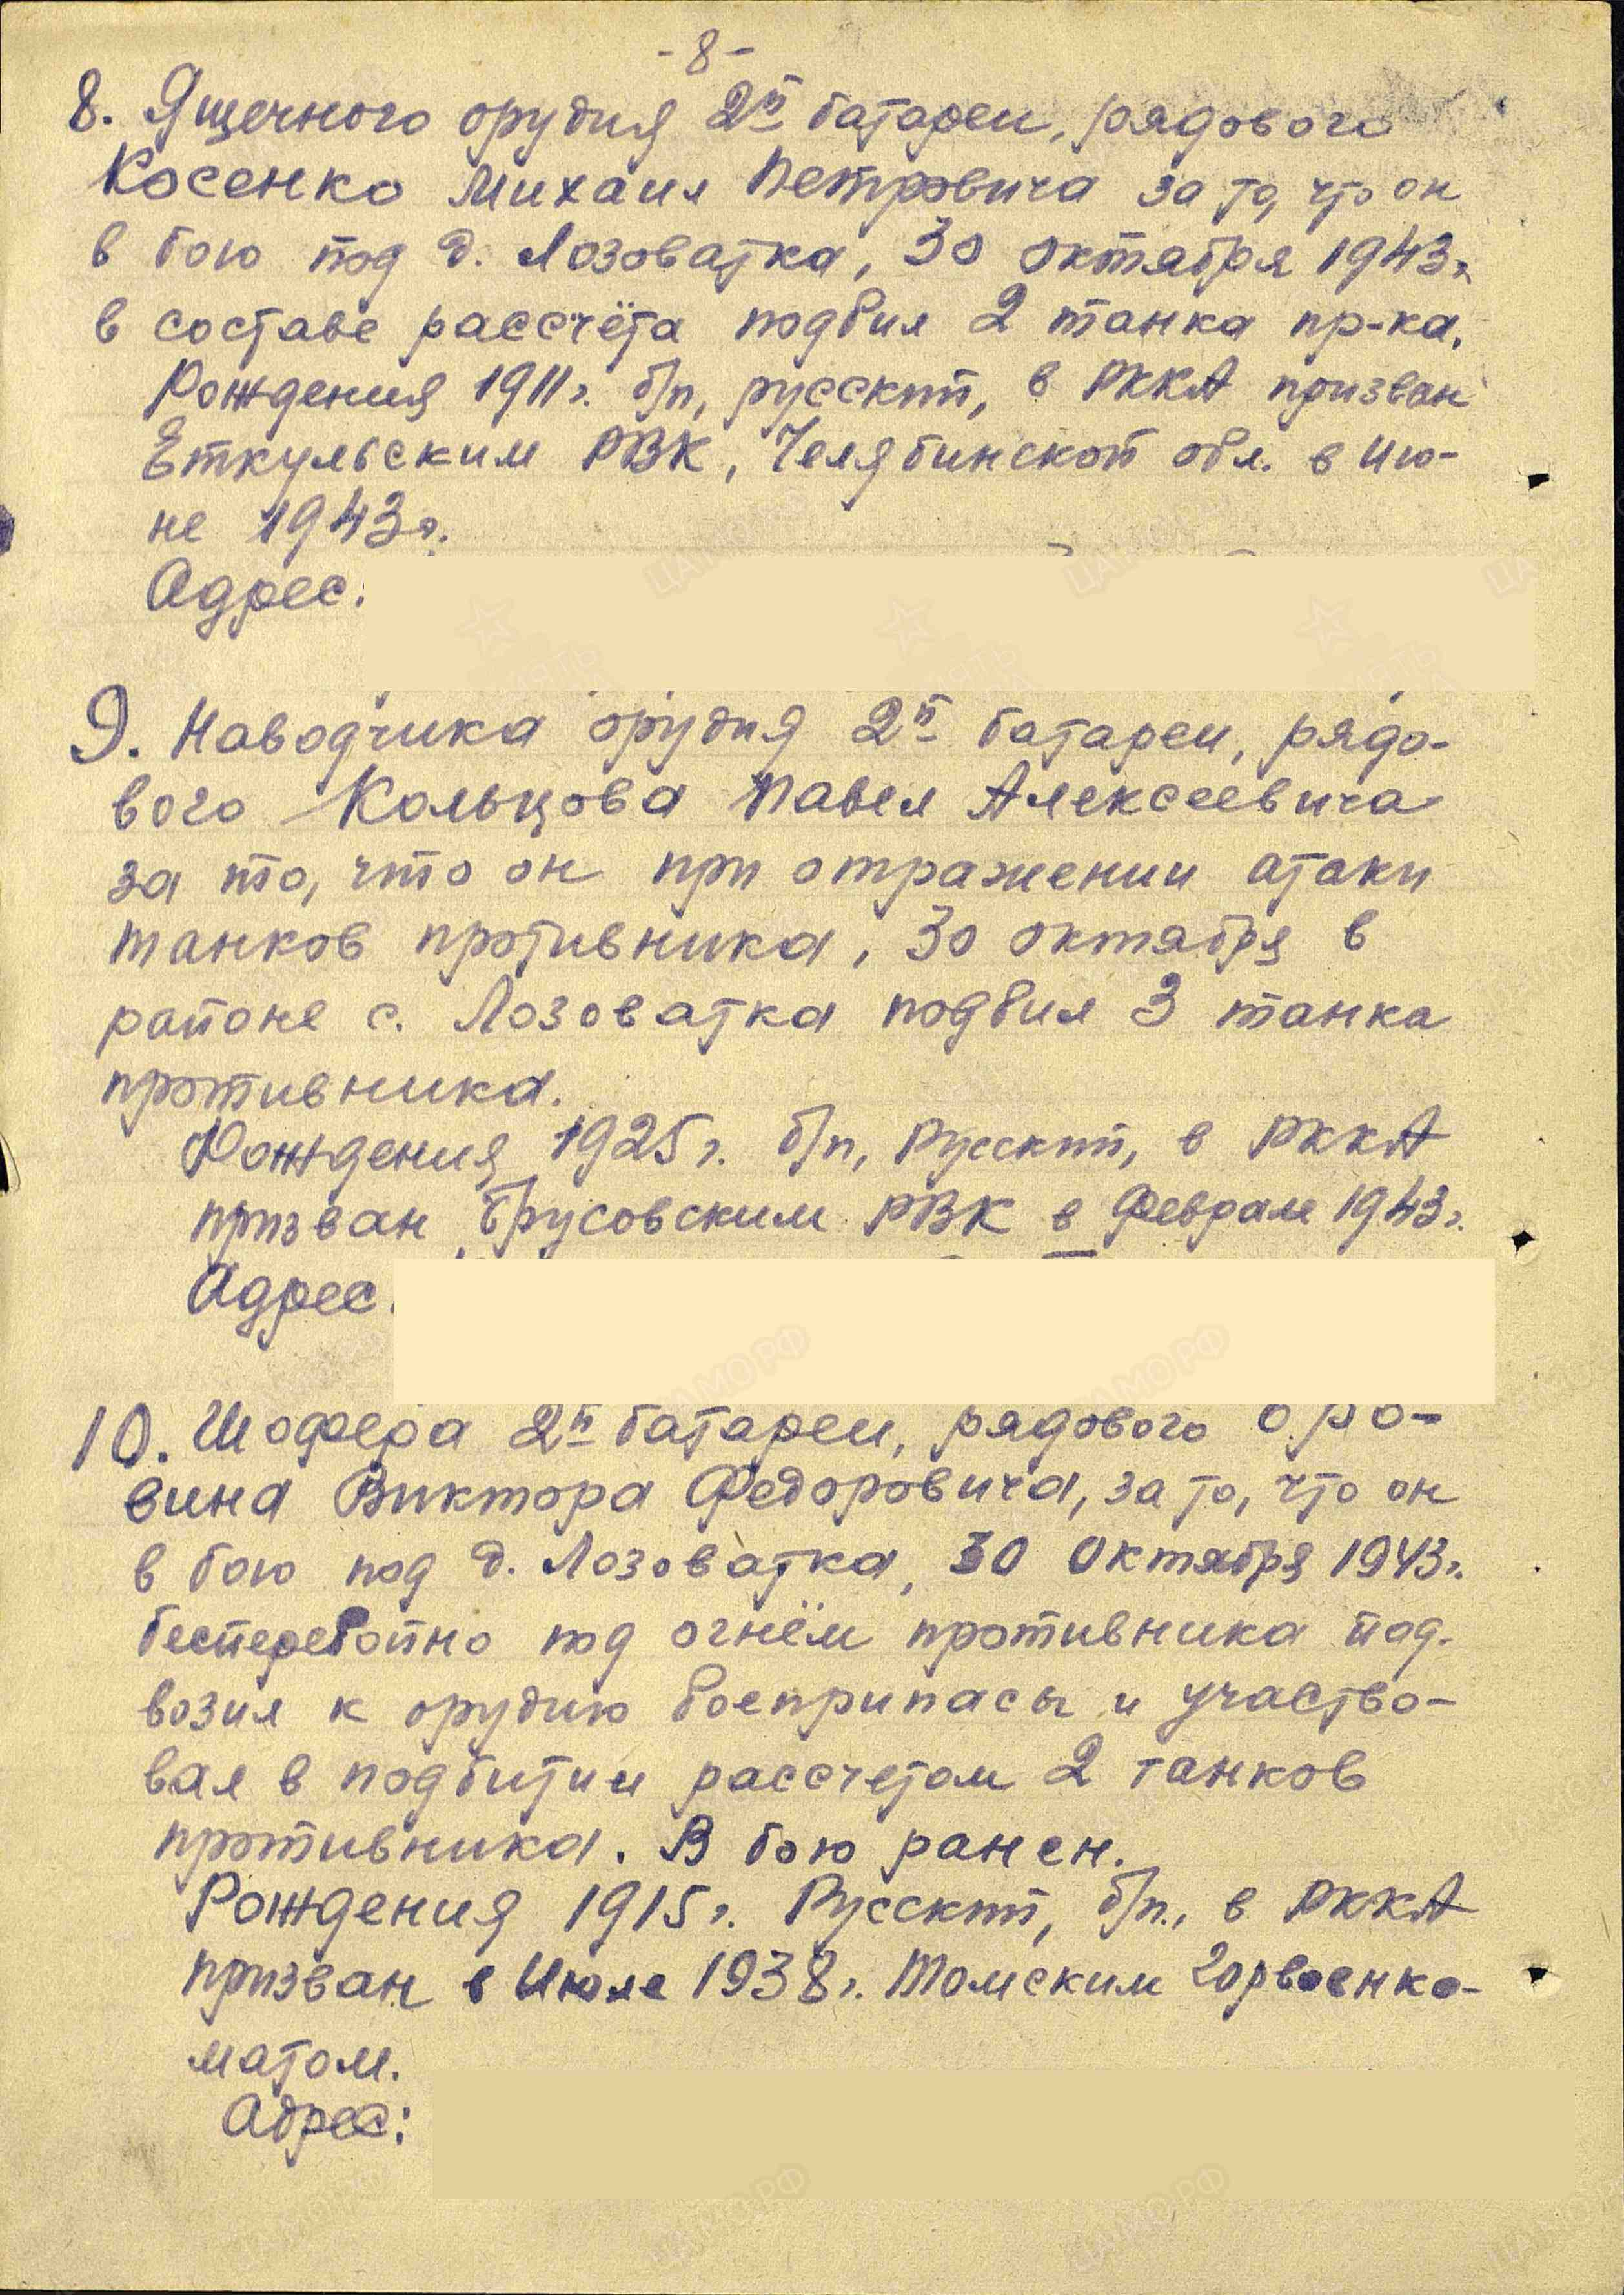 -8-
8. Ящечного орудия 2й батареи, рядового
Косенко Михаил Петровича за то, что он
в бою под д. Лозоватка, 30 октября 1943г.
в составе рассчёта подбил 2 танка пр-ка.
Рождения 1911г. б/п, русский, в РККА призван
Еткульским РВК, Челябинской обл. в Ию-
не 1943г.
Адрес:
9. Наводчика орудия 2й батареи, рядо-
вого Кольцова Павел Алексеевича
за то, что он при отражении атаки
танков противника, 30 октября в
районе с. Лозоватка подбил 3 танка
противника.
Рождения 1925г. б/п, Русский, в РККА
призван Брусовским РВК в Феврале 1943г.
Адрес.
10. Шофера 2й батареи, рядового
вина Виктора Федоровича, за то, что он
в бою под д. Лозоватка, 30 Октября 1943г.
бесперебойно под огнём противника под-
возил к орудию боеприпасы и участво-
вал в подбитии рассчетом 2 танков
противника. В бою ранен.
Рождения 1915г. Русский, б/п., в РККА
призван в Июле 1938г. Томским Горвоенко-
матом.
Адрес: